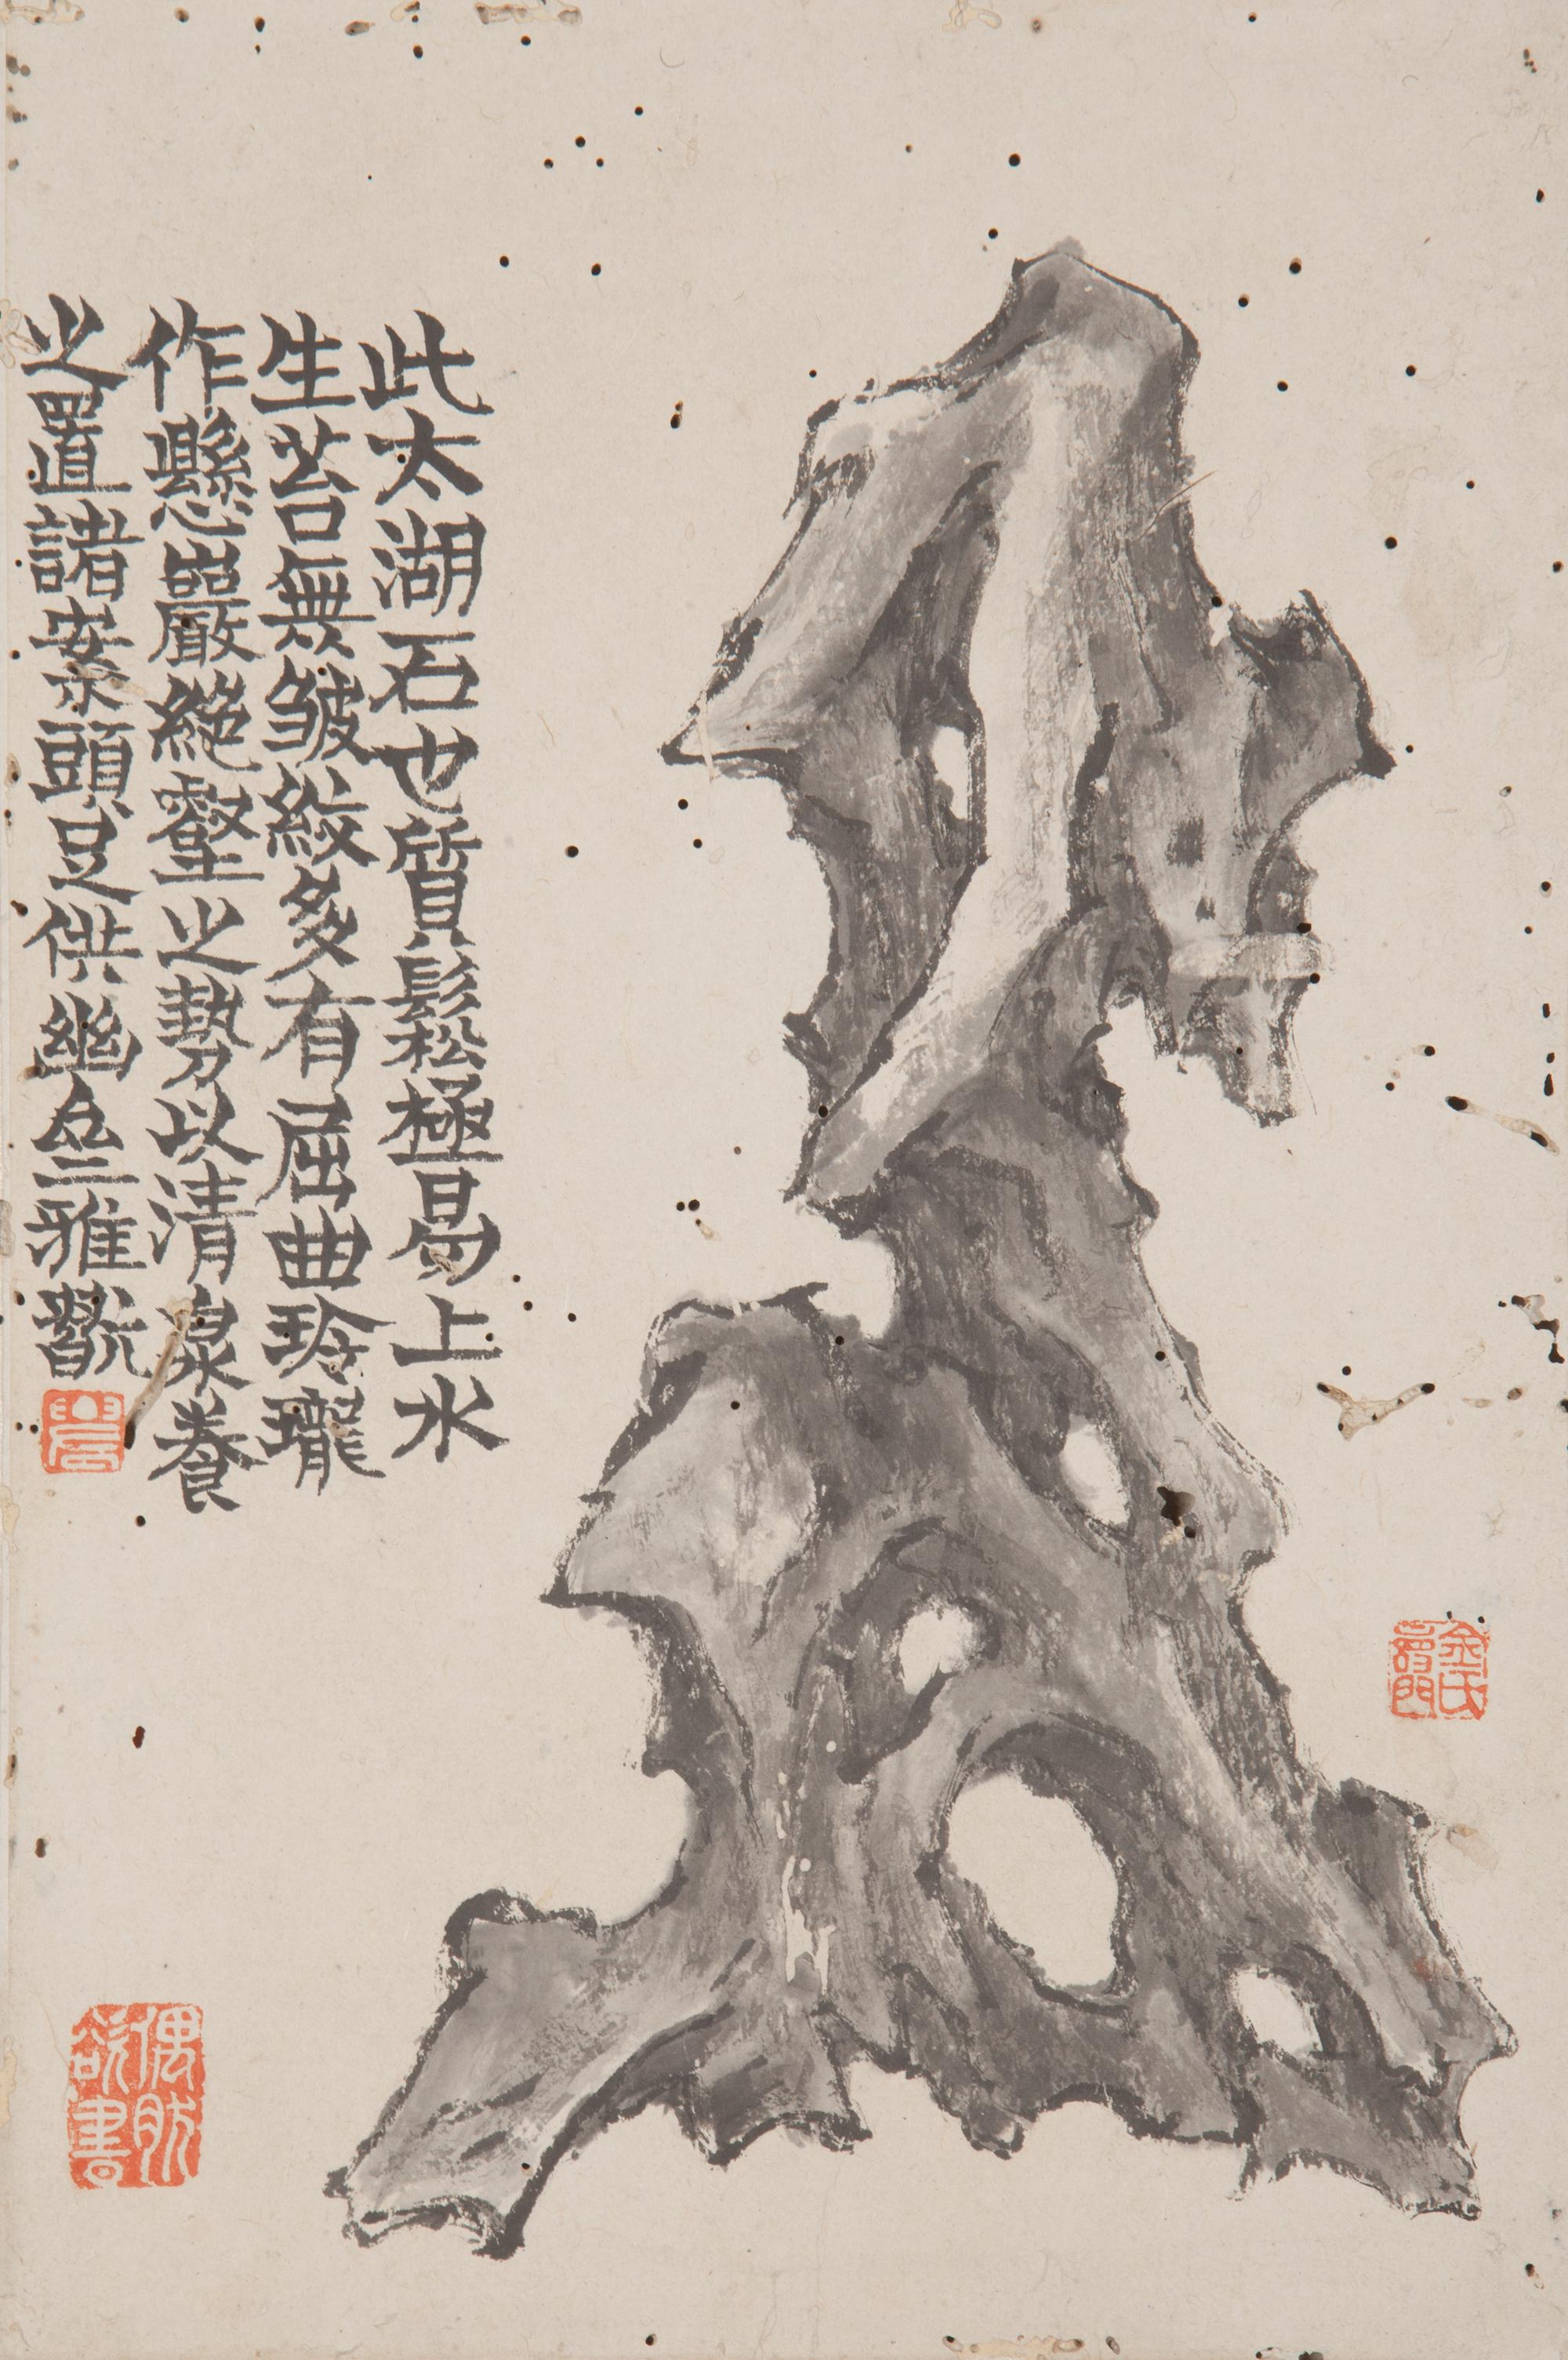 此太湖石也質鬆極易上水
生苔無皴紋多有屈曲玲瓏
作懸巖絕壑之勢以清泉養
之置諸案頭足供幽人雅翫
金氏
偶肰欲書